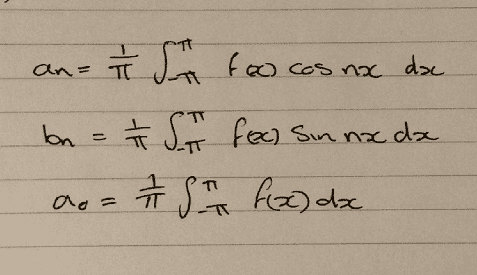 aₙ = 1/π ∫_{-π}^{π} f(x) cos nx dx
bₙ = 1/π ∫_{-π}^{π} f(x) sin nx dx
a₀ = 1/π ∫_{-π}^{π} f(x) dx